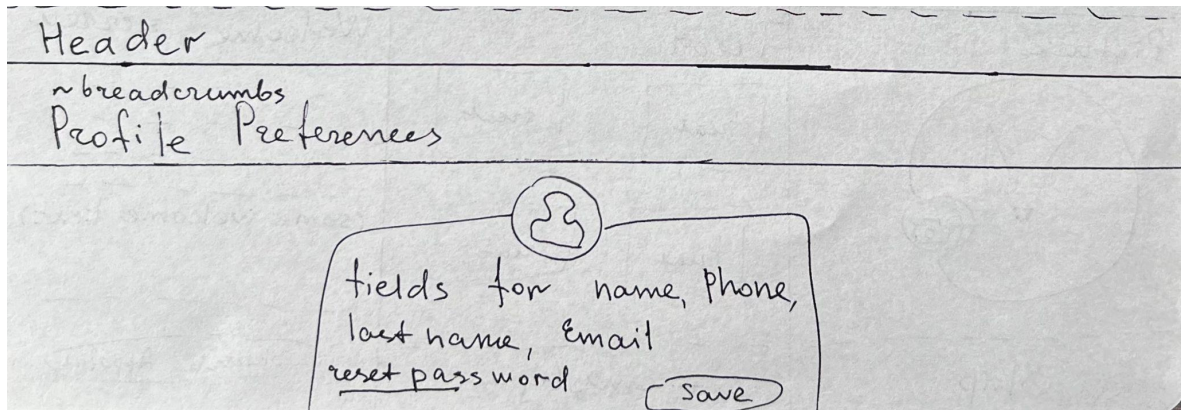 Header
~ breadcrumbs
Profile Preferences
fields for name, Phone,
last name, Email
reset password
save